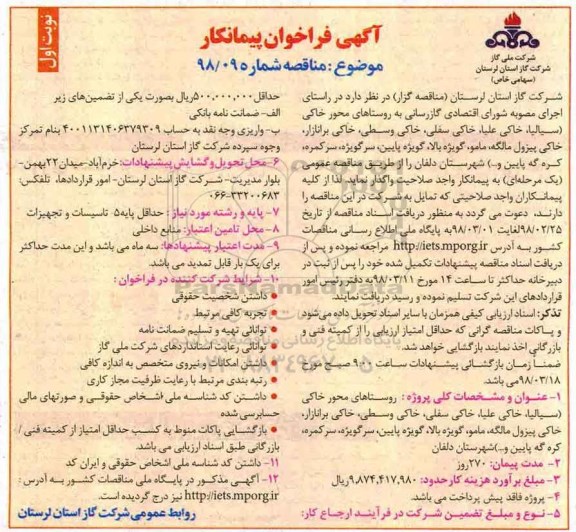 نوبت اول
شرکت ملی گاز
شرکت گاز استان لرستان
(سهامی خاص)
آگهی فراخوان پیمانکار
موضوع : مناقصه شماره ۹۸/۰۹۵
شرکت گاز استان لرستان (مناقصه گزار) در نظر دارد در راستای
اجرای مصوبه شورای اقتصادی گازرسانی به روستاهای محور خاکی
(سیالیا، خاکی علیا، خاکی سفلی، خاکی وسطی، خاکی برانازار،
خاکی پیزول مالگه، مامو، گویژه بالا، گویژه پایین، سرگویژه، سرکمره،
کره گه پایین و...) شهرستان دلفان را از طریق مناقصه عمومی
(یک مرحله‌ای) به پیمانکار واجد صلاحیت واگذار نماید. لذا از کلیه
پیمانکاران واجد صلاحیتی که تمایل به شرکت در این مناقصه را
دارند، دعوت می گردد به منظور دریافت اسناد مناقصه از تاریخ
۹۸/۰۲/۲۵لغایت ۹۸/۰۳/۰۱ به پایگاه ملی اطلاع رسانی مناقصات
کشور به آدرس http://iets.mporg.ir مراجعه نموده و پس از
دریافت اسناد مناقصه پیشنهادات تکمیل شده خود را پس از ثبت در
دبیرخانه حداکثر تا ساعت ۱۴ مورخ ۹۸/۰۳/۱۱به دفتر رئیس امور
قراردادهای این شرکت تسلیم نموده و رسید دریافت نمایند.
تذکر: اسناد ارزیابی کیفی همزمان با سایر اسناد تحویل داده می‌شود
و پاکات مناقصه گرانی که حداقل امتیاز ارزیابی را از کمیته فنی و
بازرگانی اخذ نمایند بازگشایی خواهد شد.
ضمنا زمان بازگشائی پیشنهادات ساعت ۹:۰۰ صبح مورخ
۹۸/۰۳/۱۸می باشد.
۱- عنوان و مشخصات کلی پروژه : روستاهای محور خاکی
(سیالیا، خاکی علیا، خاکی سفلی، خاکی وسطی، خاکی برانازار،
خاکی پیزول مالگه، مامو، گویژه بالا، گویژه پایین، سرگویژه، سرکمره،
کره گه پایین و...)شهرستان دلفان
۲- مدت پیمان: ۲۷۰روز
۳- مبلغ برآورد هزینه کار حدود: ۹،۸۷۴،۴۱۷،۹۸۰ریال
۴- پروژه فاقد پیش پرداخت می باشد.
۵- نوع و مبلغ تضمین شرکت در فرآیند ارجاع کار:
حداقل۵۰۰،۰۰۰،۰۰۰ریال بصورت یکی از تضمین‌های زیر
الف- ضمانت نامه بانکی
ب- واریزی وجه نقد به حساب ۴۰۰۱۱۳۱۴۰۶۳۷۹۳۰۹ بنام تمرکز
وجوه سپرده شرکت گاز استان لرستان
۶- محل تحویل و گشایش پیشنهادات: خرم‌آباد-میدان ۲۲بهمن-
بلوار مدیریت- شرکت گاز استان لرستان- امور قراردادها، تلفکس:
۰۶۶-۳۳۲۰۰۶۸۳
۷- پایه و رشته مورد نیاز : حداقل پایه۵ تاسیسات و تجهیزات
۸- محل تامین اعتبار: منابع داخلی
۹- مدت اعتبار پیشنهادها: سه ماه می باشد و این مدت حداکثر
برای یک بار قابل تمدید می باشد.
۱۰- شرایط شرکت کننده در فراخوان :
• داشتن شخصیت حقوقی
• تجربه کافی مرتبط
• توانائی تهیه و تسلیم ضمانت نامه
• توانائی رعایت استانداردهای شرکت ملی گاز
• داشتن امکانات و نیروی متخصص به اندازه کافی
• رتبه بندی مرتبط با رعایت ظرفیت مجاز کاری
• داشتن کد شناسه ملی اشخاص حقوقی و صورتهای مالی
حسابرسی شده
• بازگشایی پاکات منوط به کسب حداقل امتیاز از کمیته فنی /
بازرگانی طبق اسناد ارزیابی می باشد.
۱۱- داشتن کد شناسه ملی اشخاص حقوقی و ایران کد
۱۲- آگهی مذکور در پایگاه ملی مناقصات کشور به آدرس :
http://iets.mporg.ir نیز درج گردیده است.
روابط عمومی شرکت گاز استان لرستان